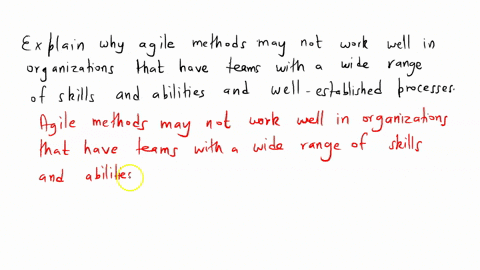 Explain why agile methods may not work well in
organizations that have teams with a wide range
of skills and abilities and well-established processes.
Agile methods may not work well in organizations
that have teams with a wide range of skills
and abilities